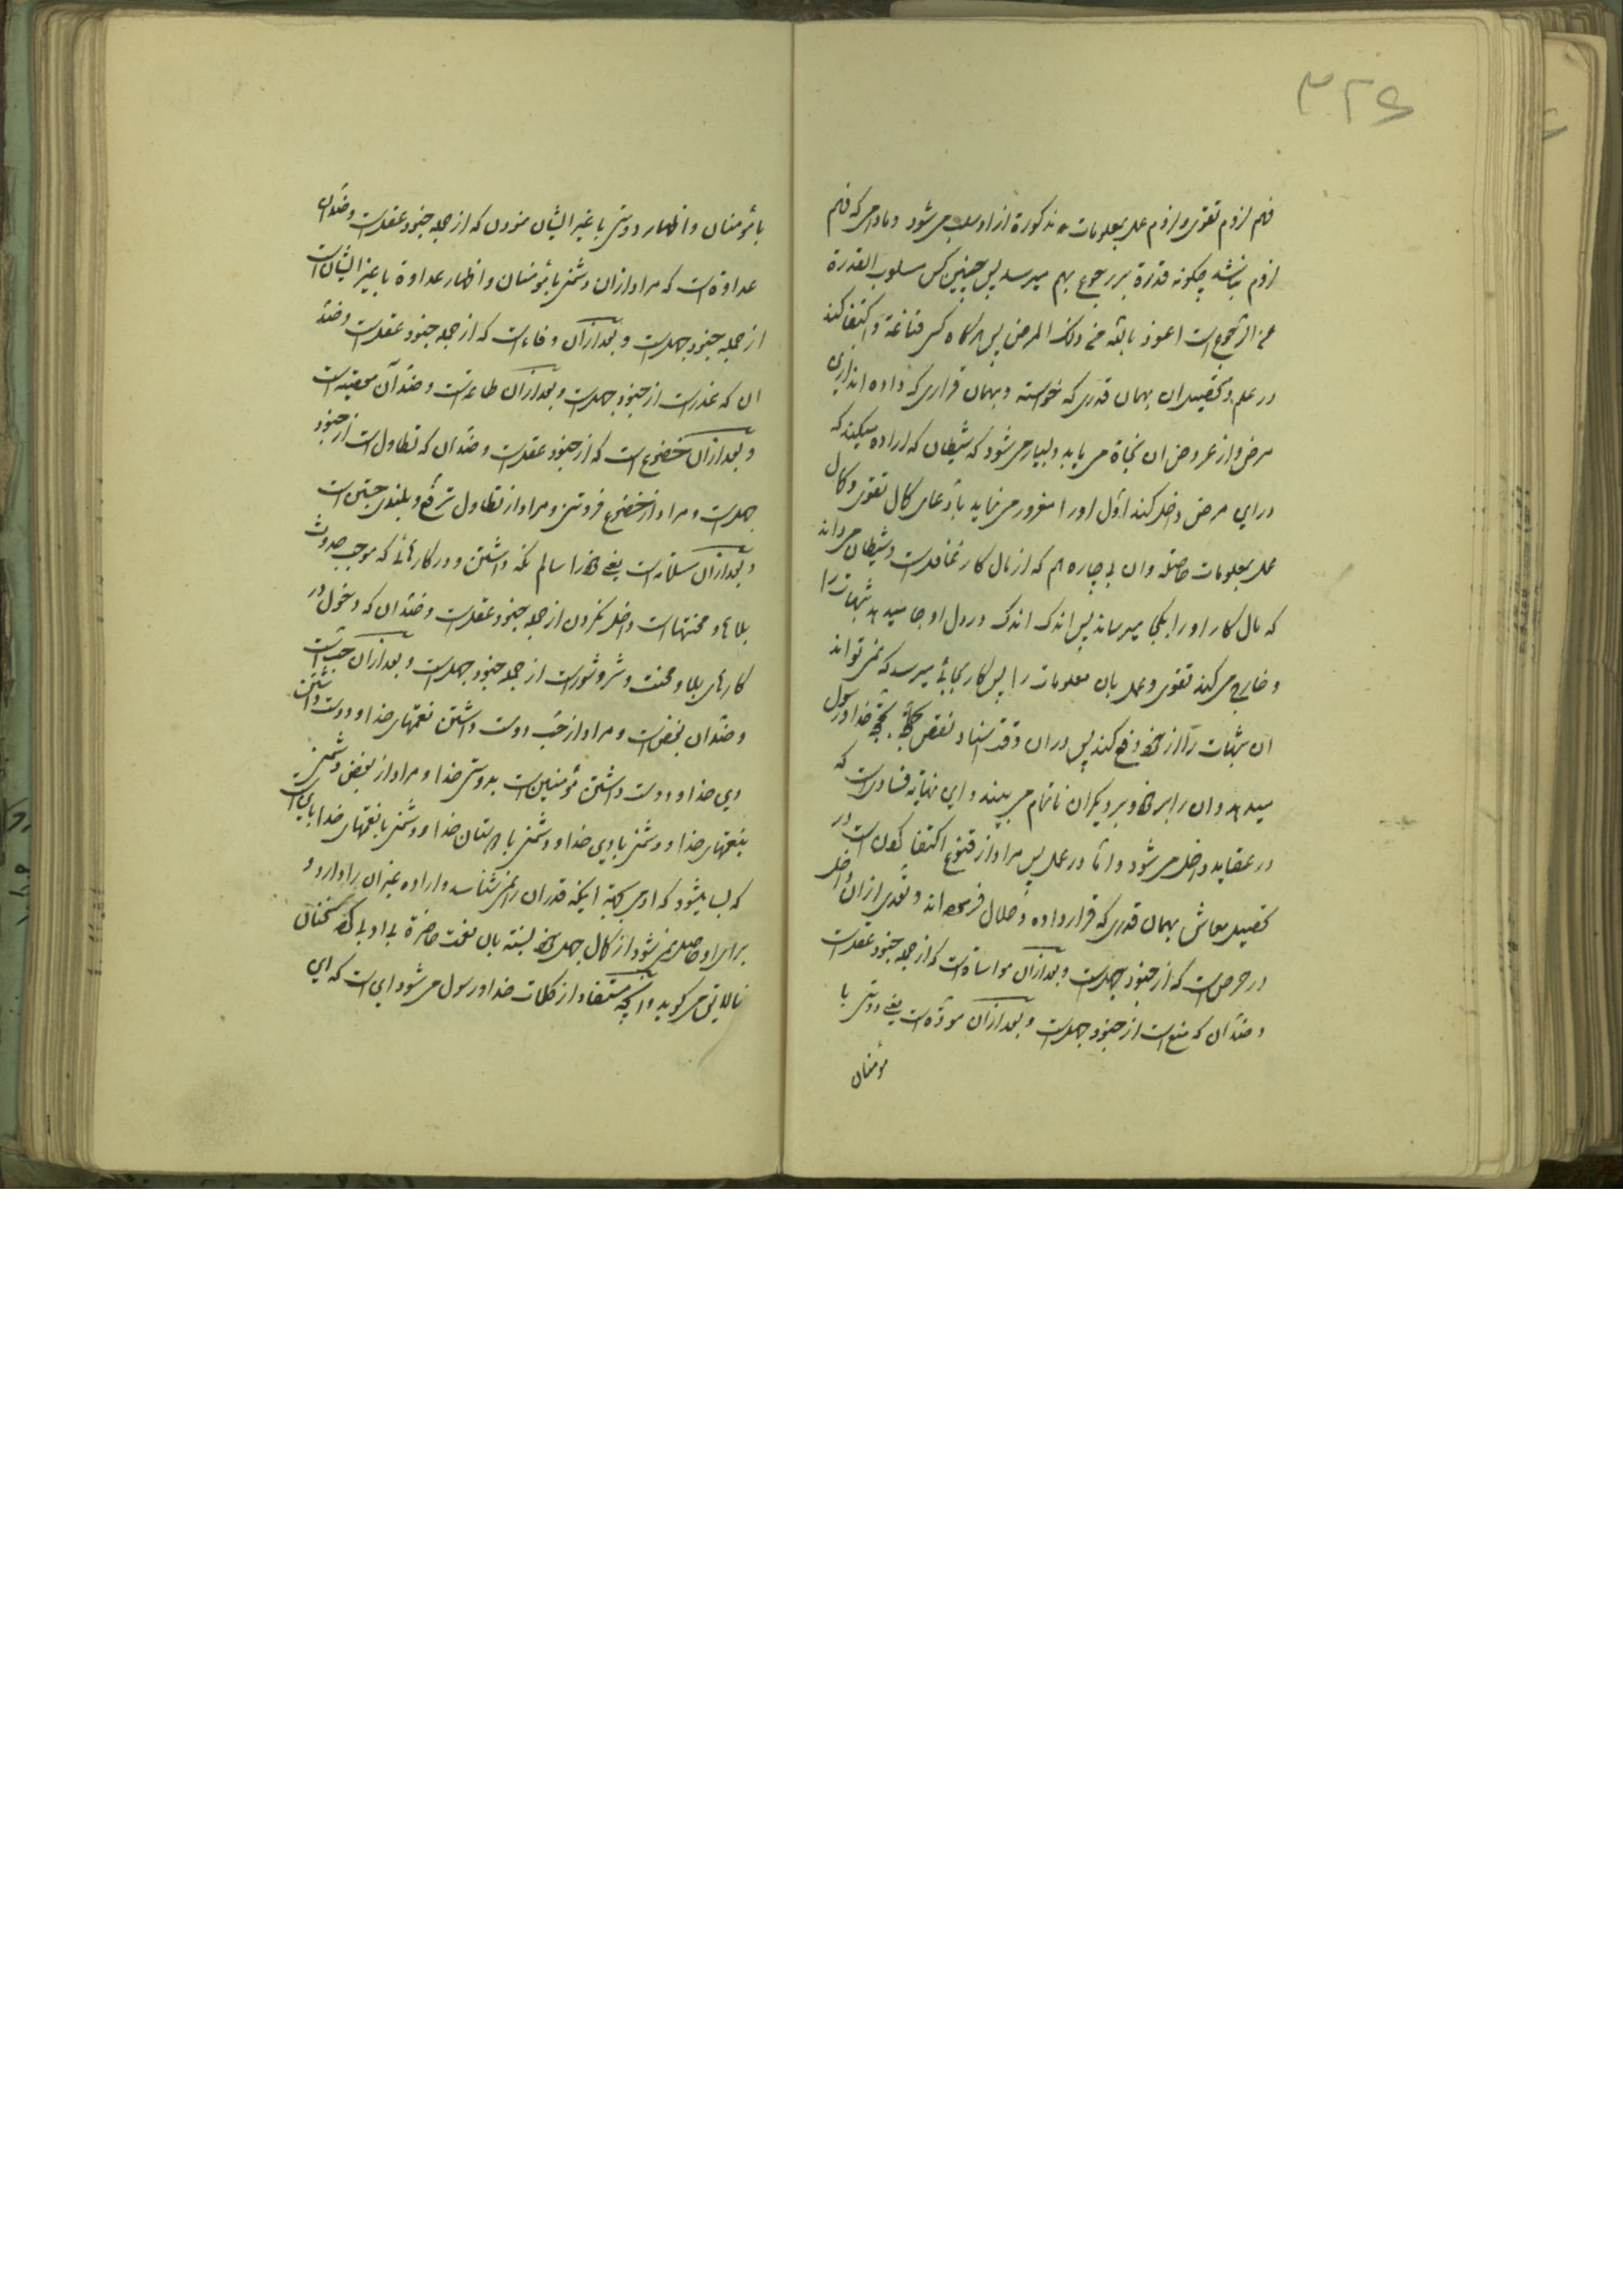 ۳۲۶
فهم لزوم تقوی و لزوم عمل بمعلومات مذکورة از او سلب می شود و مادامی که فهم
لزوم نباشد چگونه قدرة بر رجوع بهم میرسد پس چنین کس مسلوب القدرة
عن الرجوع است اعوذ بالله من ذلک المرض پس هر گاه کسی قناعة و اکتفا کند
در علم و تحصیل ان بهمان قدری که خواسته و بهمان قراری که داده اند از این
مرض و از عروض ان نجاة می یابد و بسیار می شود که شیطان که اراده میکند که
در این مرض داخل کند اول او را مغرور می نماید بادعای کمال تقوی و کمال
عمل بمعلومات حاصله و ان بیچاره هم که از مال کار غافل است و شیطان می داند
که مال کار او را بکجا میرساند پس اندک اندک در دل او جا میدهد شبهات را
و خارج می کند تقوی و عمل بان معلومات را پس کار بجائی میرسد که نمی تواند
ان شبهات را از خود دفع کند پس دران وقت اسناد نقص بحجة خدا و رسول
میدهد و ان را بر خود و بر دیگران ناتمام می بیند و این نهایة فساد است که
در عقاید داخل می شود و اما در عمل پس مراد از قنوع اکتفا کردن است در
تحصیل معاش بهمان قدری که قرار داده و حلال فرموده اند و تعدی از ان داخل
در حرص است که از جنود جهل است و بعد از ان مواساة است که از جمله جنود عقل است
و ضد ان که منع است از جنود جهل است و بعد از ان مودة است یعنی دوستی با
مؤمنان
با مؤمنان و اظهار دوستی با غیر ایشان نمودن که از جمله جنود عقل است و ضد ان
عداوة است که مراد از ان دشمنی با مؤمنان و اظهار عداوة با غیر ایشان است
از جمله جنود جهل است و بعد از ان وفاء است که از جمله جنود عقل است و ضد
ان که غدر است از جنود جهل است و بعد از ان طاعة است و ضد آن معصیة است
و بعد از ان خضوع است که از جنود عقل است و ضد ان که تطاول است از جنود
جهل است و مراد از خضوع فروتنی و مراد از تطاول ترفع و بلندی جستن است
و بعد از ان سلامة است یعنی خود را سالم نگه داشتن و در کارهائی که موجب حدوث
بلاها و محنتها است داخل نکردن از جمله جنود عقل است و ضد ان که دخول در
کارهای بلا و محنت و شر و شور است از جمله جنود جهل است و بعد از ان حب است
و ضد ان بغض است و مراد از حب دوست داشتن نعمتهای خدا و دوست داشتن
دین خدا و دوست داشتن مؤمنین است بدوستی خدا و مراد از بغض دشمنی
بنعمتهای خدا و دشمنی با دین خدا و دشمنی با دوستان خدا و دشمنی با نعمتهای خدا باین است
که بسا میشود که ادمی بجهة اینکه قدر ان را نمی شناسد و اراده غیر ان را دارد و
برای او حاصل نمی شود از کمال جهل خود نسبة بان نعمت حاضرة بی ادبی کرده سخنان
نالایق می گوید و انچه مستفاد از کلمات خدا و رسول می شود این است که این